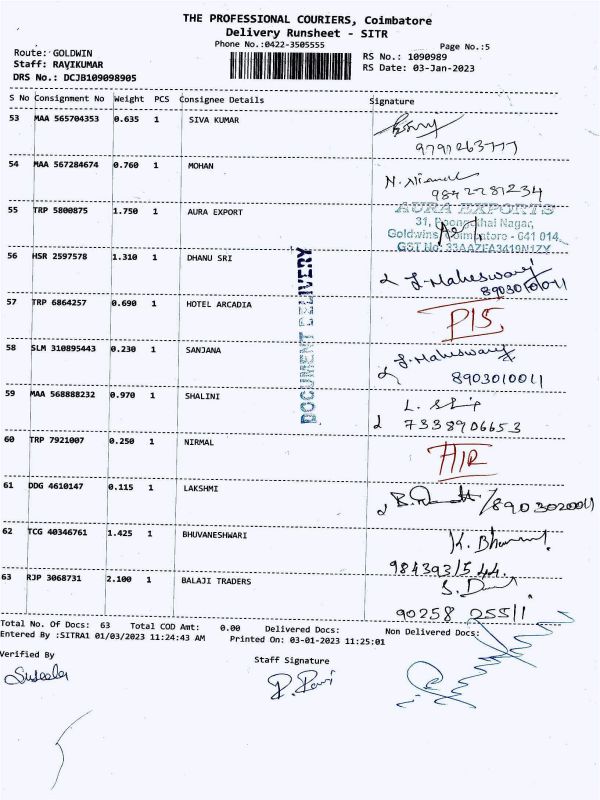 THE PROFESSIONAL COURIERS, Coimbatore
Delivery Runsheet - SITR
Phone No.:0422-3505555
Page No.:5
Route: GOLDWIN
Staff: RAVIKUMAR
DRS No.: DCJB109098905
RS No.: 1090989
RS Date: 03-Jan-2023
S No Consignment No Weight PCS Consignee Details Signature
53 MAA 565704353 0.635 1 SIVA KUMAR
9791263777
54 MAA 567284674 0.760 1 MOHAN
9842281234
55 TRP 5800875 1.750 1 AURA EXPORT
AURA EXPORTS
31, Nagar,
Goldwins, Coimbatore - 641 014.
GST No: 33AAZFA3419N1ZY
56 HSR 2597578 1.310 1 DHANU SRI
J. Maheswary
8903010011
57 TRP 6864257 0.690 1 HOTEL ARCADIA
58 SLM 310895443 0.230 1 SANJANA
J. Maheswary
8903010011
59 MAA 568888232 0.970 1 SHALINI
7338906653
60 TRP 7921007 0.250 1 NIRMAL
61 DDG 4610147 0.115 1 LAKSHMI
/8903020011
62 TCG 40346761 1.425 1 BHUVANESHWARI
63 RJP 3068731 2.100 1 BALAJI TRADERS
90258 25511
DOCUMENT DELIVERY
Total No. Of Docs: 63 Total COD Amt: 0.00 Delivered Docs: Non Delivered Docs:
Entered By :SITRA1 01/03/2023 11:24:43 AM Printed On: 03-01-2023 11:25:01
Verified By
Staff Signature
Suseela
R. Ravi